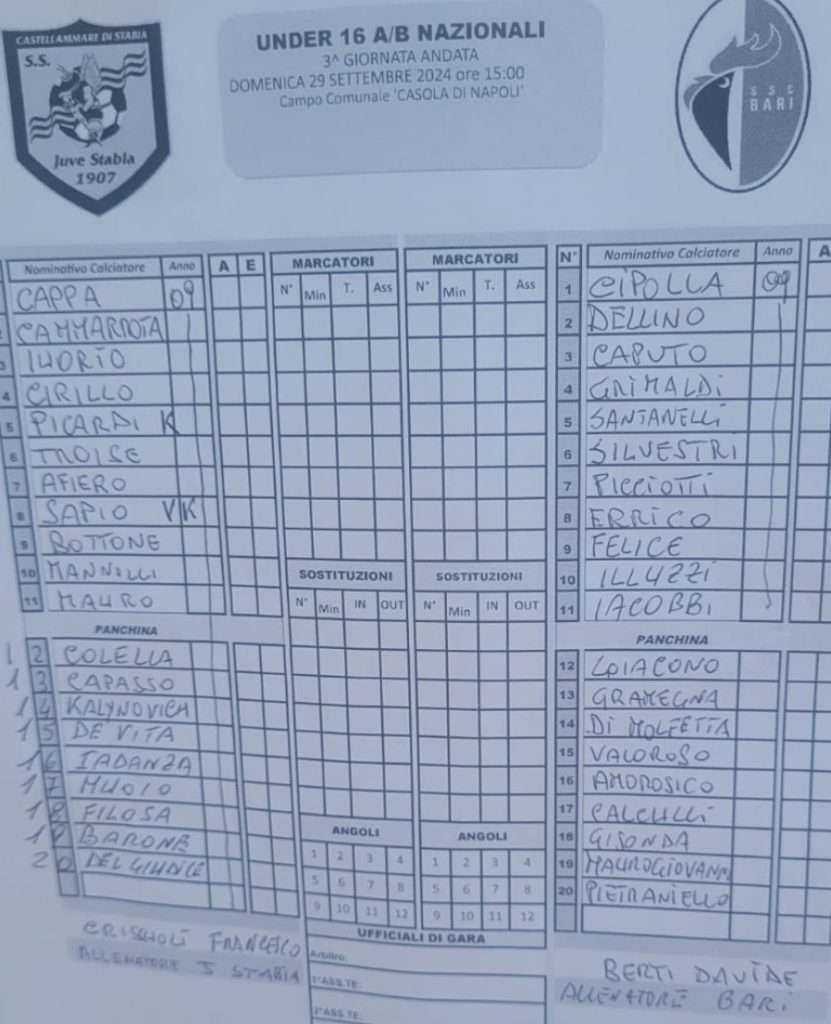 CASTELLAMMARE DI STABIA
S.S.
Juve Stabia
1907
UNDER 16 A/B NAZIONALI
3^ GIORNATA ANDATA
DOMENICA 29 SETTEMBRE 2024 ore 15:00
Campo Comunale 'CASOLA DI NAPOLI'
SSC
BARI
Nominativo Calciatore Anno A E
CAPPA 09
2 CAMMAROTA
3 IUORIO
4 CIRILLO
5 PICARDI K
6 TROISE
7 AFIERO
8 SAPIO VK
9 BOTTONE
10 MANNILLI
11 MAURO
PANCHINA
12 COLELLA
13 CAPASSO
14 KALYNOVICH
15 DE VITA
16 IADANZA
17 MUOIO
18 FILOSA
19 BARONE
20 DEL GIUDICE
FRANCESCO
ALLENATORE J STABIA
MARCATORI MARCATORI
N° Min T. Ass N° Min T. Ass
SOSTITUZIONI SOSTITUZIONI
N° Min IN OUT N° Min IN OUT
ANGOLI ANGOLI
1 2 3 4 1 2 3 4
5 6 7 8 5 6 7 8
9 10 11 12 9 10 11 12
UFFICIALI DI GARA
Arbitro:
1°ASS.TE:
2°ASS.TE:
N° Nominativo Calciatore Anno A
1 CIPOLLA 09
2 DELLINO
3 CAPUTO
4 GRIMALDI
5 SANTANELLI
6 SILVESTRI
7 PICCIOTTI
8 ERRICO
9 FELICE
10 ILLUZZI
11 IACOBBI
PANCHINA
12 LOIACONO
13 GRAMEGNA
14 DI MOLFETTA
15 VALOROSO
16 AMOROSICO
17 CALCULLI
18 GISONDA
19 MAUROGIOVANNI
20 PIETRANIELLO
BERTI DAVIDE
ALLENATORE BARI